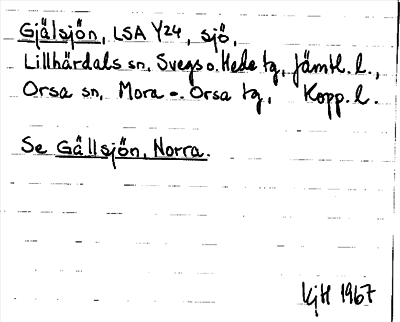 Gjälsjön, LSA Y24, sjö,
Lillhärdals sn, Svegs o. Hede tg, Jämtl. l.,
Orsa sn, Mora - o. Orsa tg, Kopp. l.
Se Gällsjön, Norra.
KjH 1967